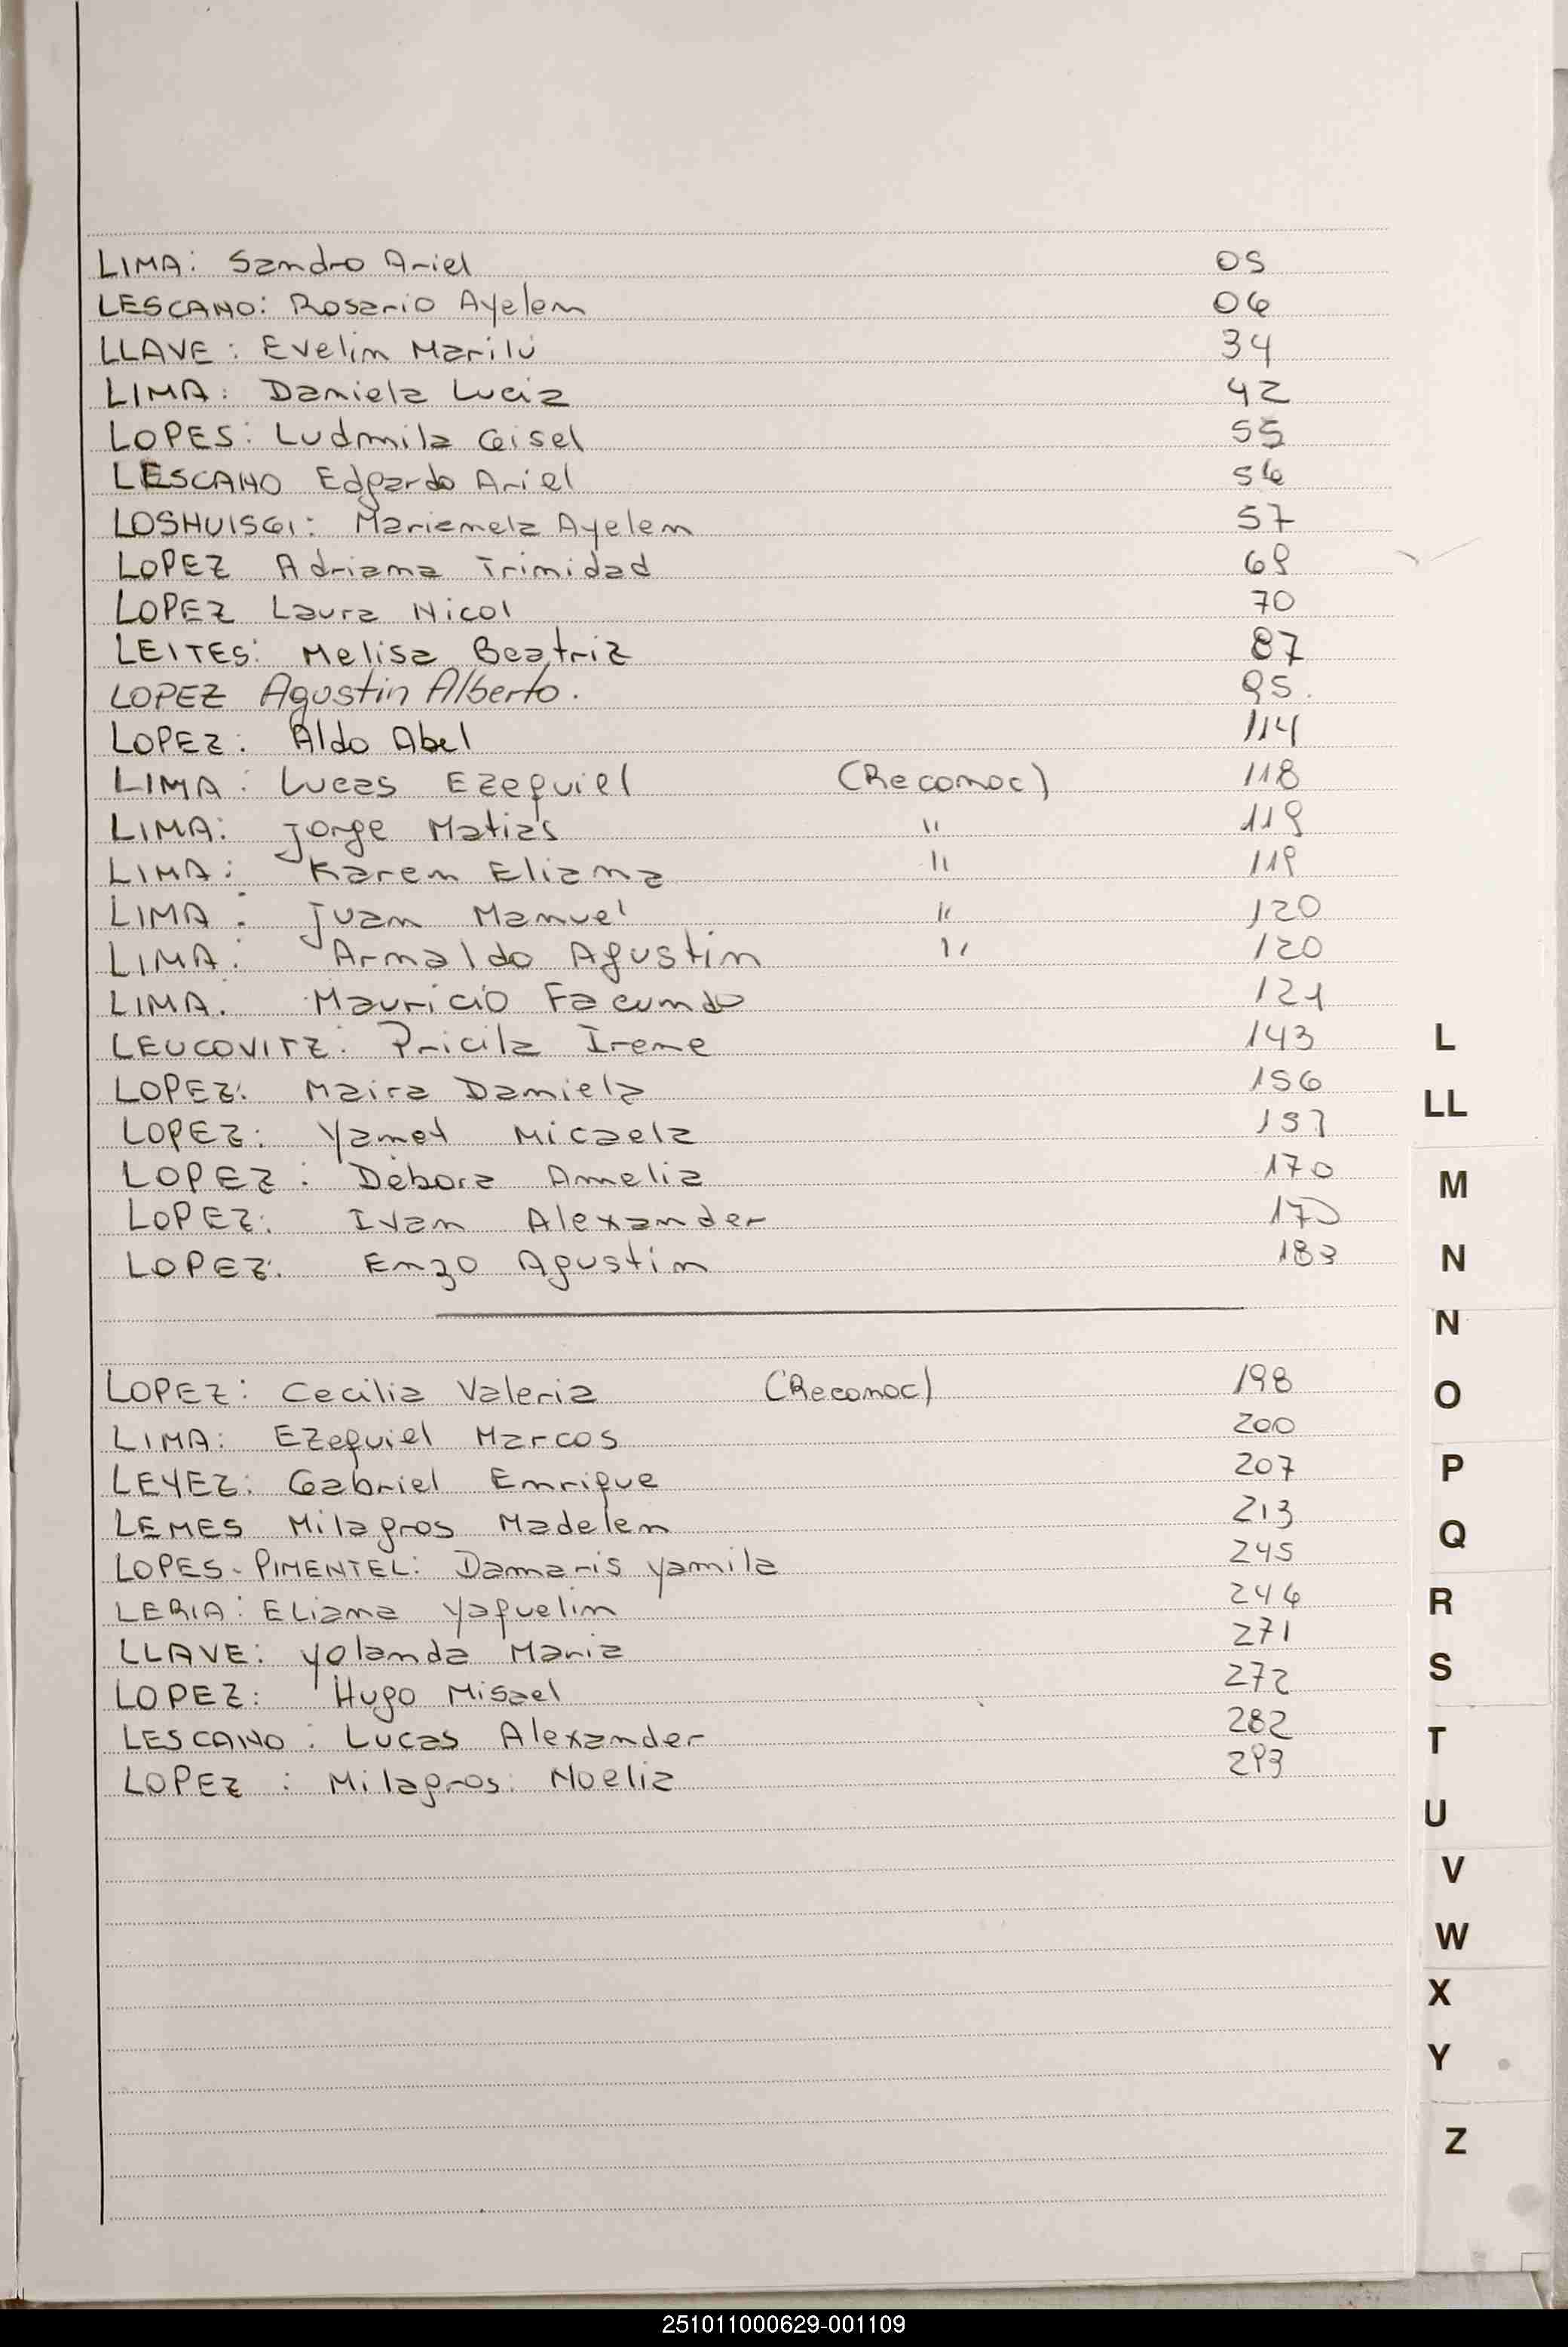 LIMA: Sandro Ariel 05
LESCANO: Rosario Ayelen 06
LLAVE: Evelin Marilú 34
LIMA: Daniela Lucia 42
LOPES: Ludmila Geisel 55
LESCANO Edgardo Ariel 56
LOSHUISGI: Mariemela Ayelen 57
LOPEZ Adriana Trinidad 69
LOPEZ Laura Nicol 70
LEITES: Melisa Beatriz 87
LOPEZ Agustin Alberto. 95.
LOPEZ: Aldo Abel 114
LIMA: Lucas Ezequiel (Reconoc) 118
LIMA: Jorge Matias " 119
LIMA: Karen Eliana " 119
LIMA: Juan Manuel " 120
LIMA: Arnaldo Agustin " 120
LIMA: Mauricio Facundo 121
LEUCOVITZ: Pricila Irene 143
LOPEZ: Maira Daniela 156
LOPEZ: Yamet Micaela 157
LOPEZ: Débora Annelia 170
LOPEZ: Ivan Alexander 170
LOPEZ: Enzo Agustin 183
LOPEZ: Cecilia Valeria (Reconoc) 198
LIMA: Ezequiel Marcos 200
LEYEZ: Gabriel Enrique 207
LEMES Milagros Madelen 213
LOPES-PIMENTEL: Damaris yamila 245
LERIA: Eliana Yaquelin 246
LLAVE: yolanda Maria 271
LOPEZ: Hugo Misael 272
LESCANO: Lucas Alexander 282
LOPEZ: Milagros Noelia 293
L
LL
M
N
N
O
P
Q
R
S
T
U
V
W
X
Y
Z
251011000629-001109